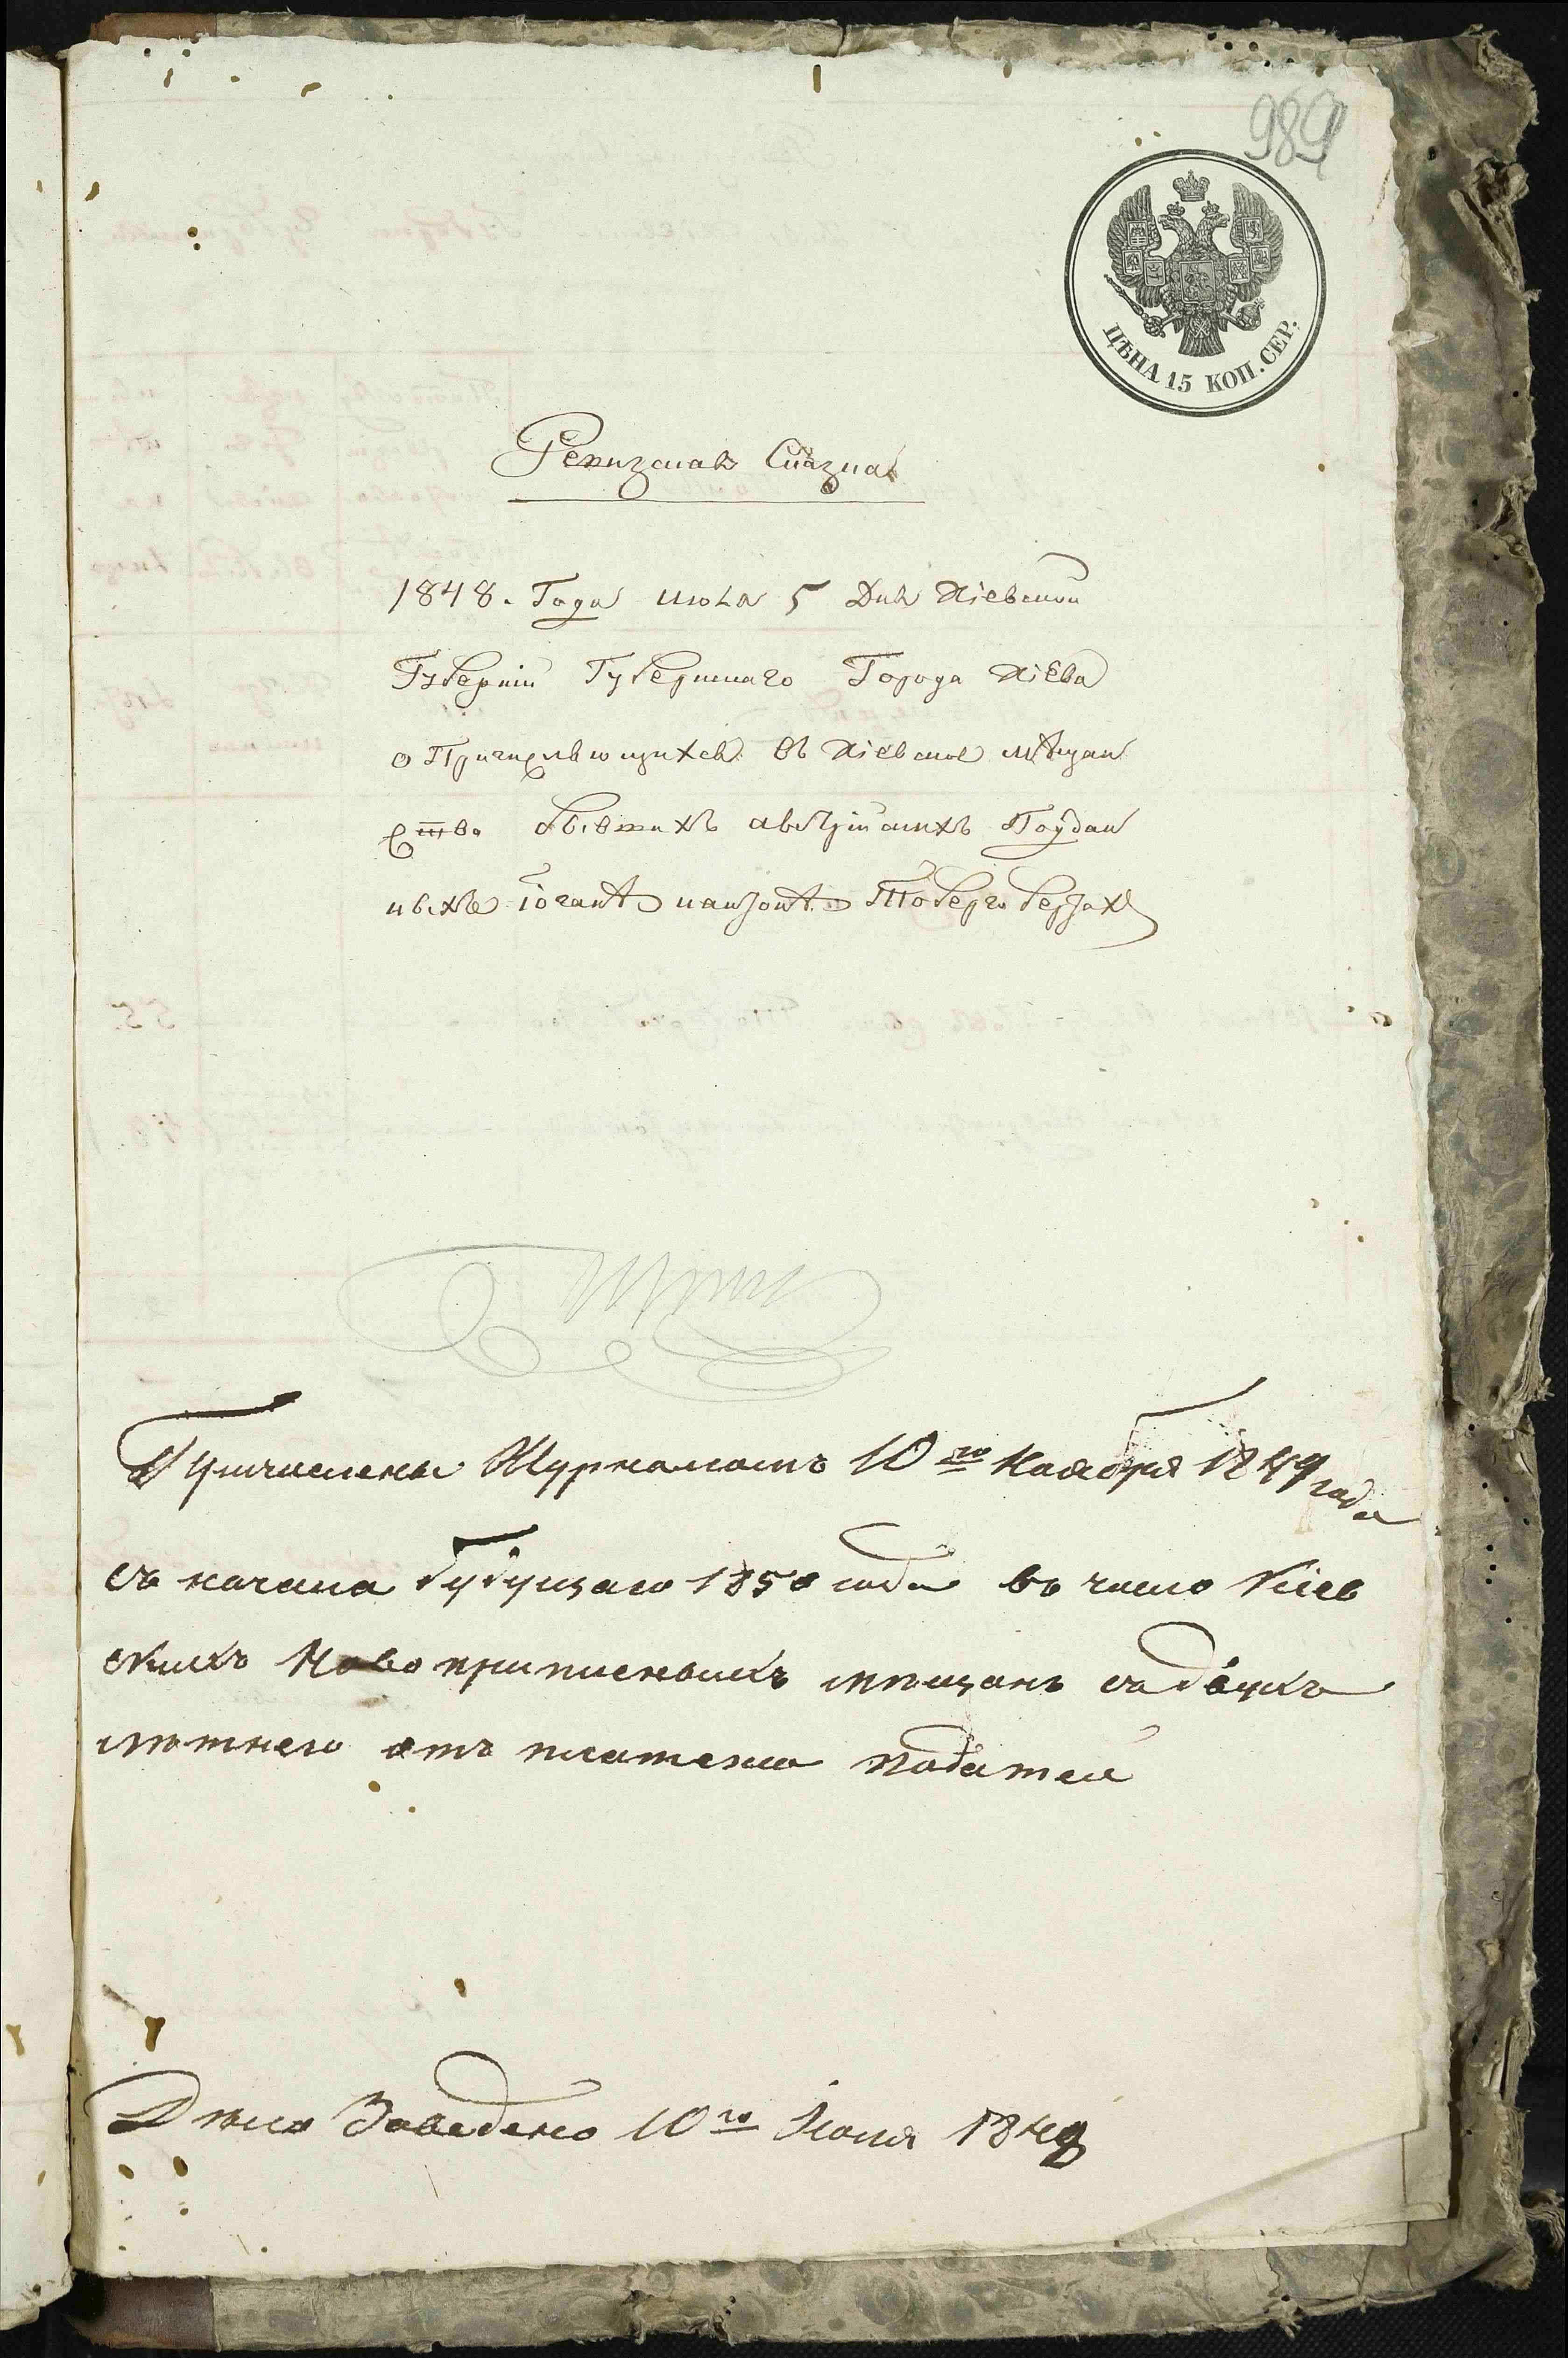 989
ЦѢНА 15 КОП. СЕР.
Ревизская Сказка
1848. Года июля 5 Дня Кіевской
Губерніи Губернскаго Города Кіева
о Причисляющихся въ Кіевское мѣщан
ство бывшихъ австрійскихъ Поддан
ныхъ
Причислены Журналомъ 10го Ноября 1849 года
съ начала будущаго 1850 года въ число Кіев
скихъ Новоприписныхъ мѣщанъ съ
лѣтнею отъ платежа податей
Дѣло Заведено 10го Іюля 1848